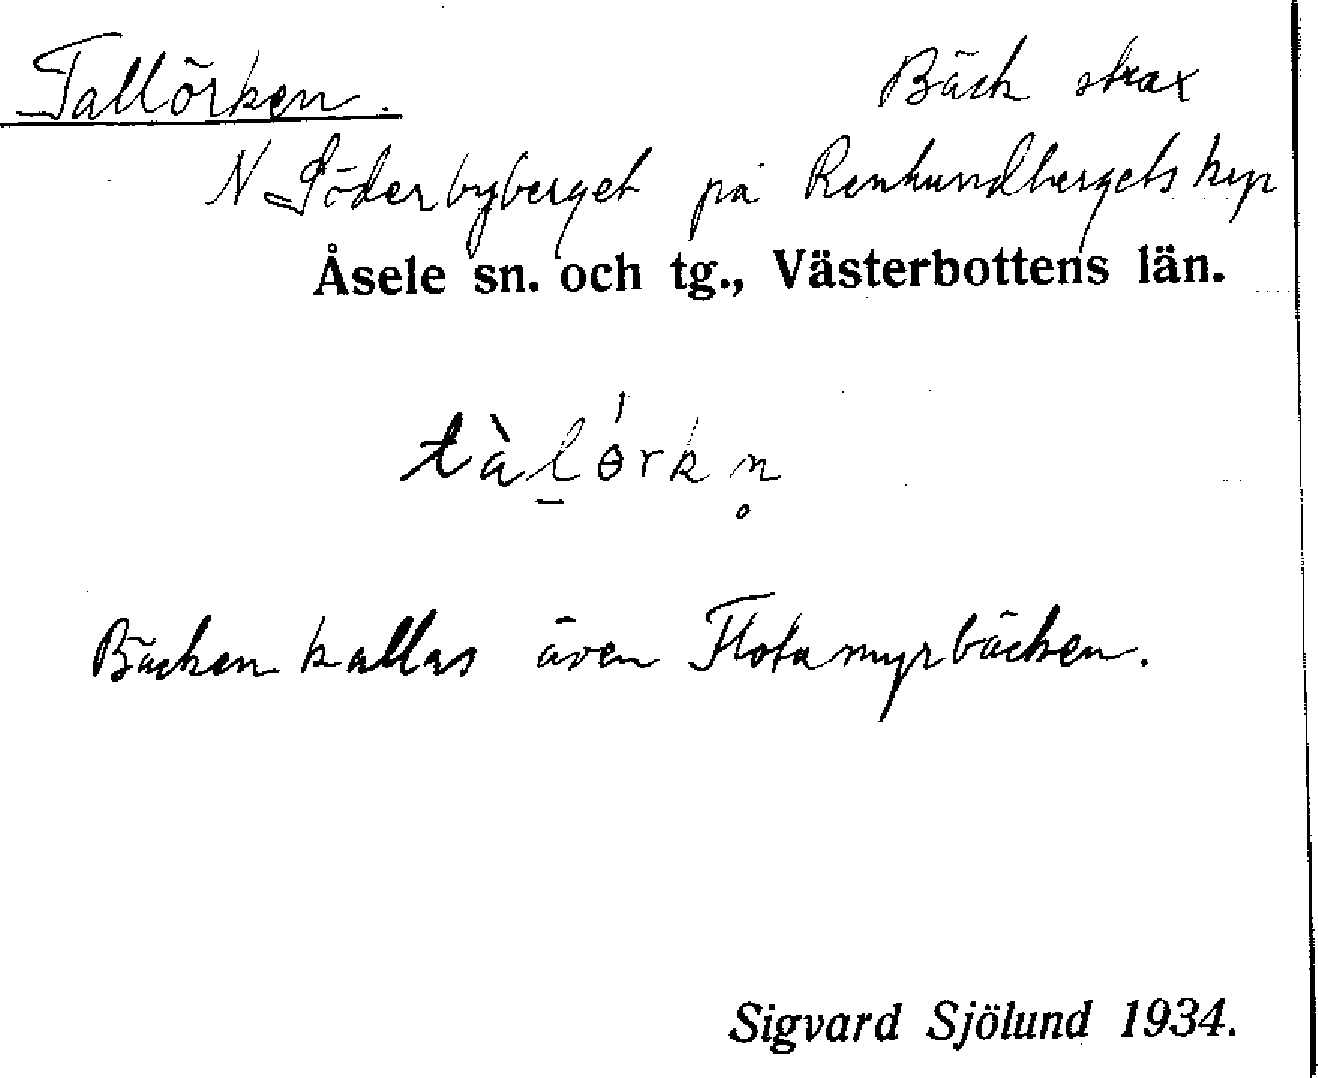 Tallörken. Bäck strax
N Söderbyberget på Renhundbergets krp
Åsele sn. och tg., Västerbottens län.
tàl̠ө́rkn̥
Bäcken kallas även Flotamyrbäcken.
Sigvard Sjölund 1934.